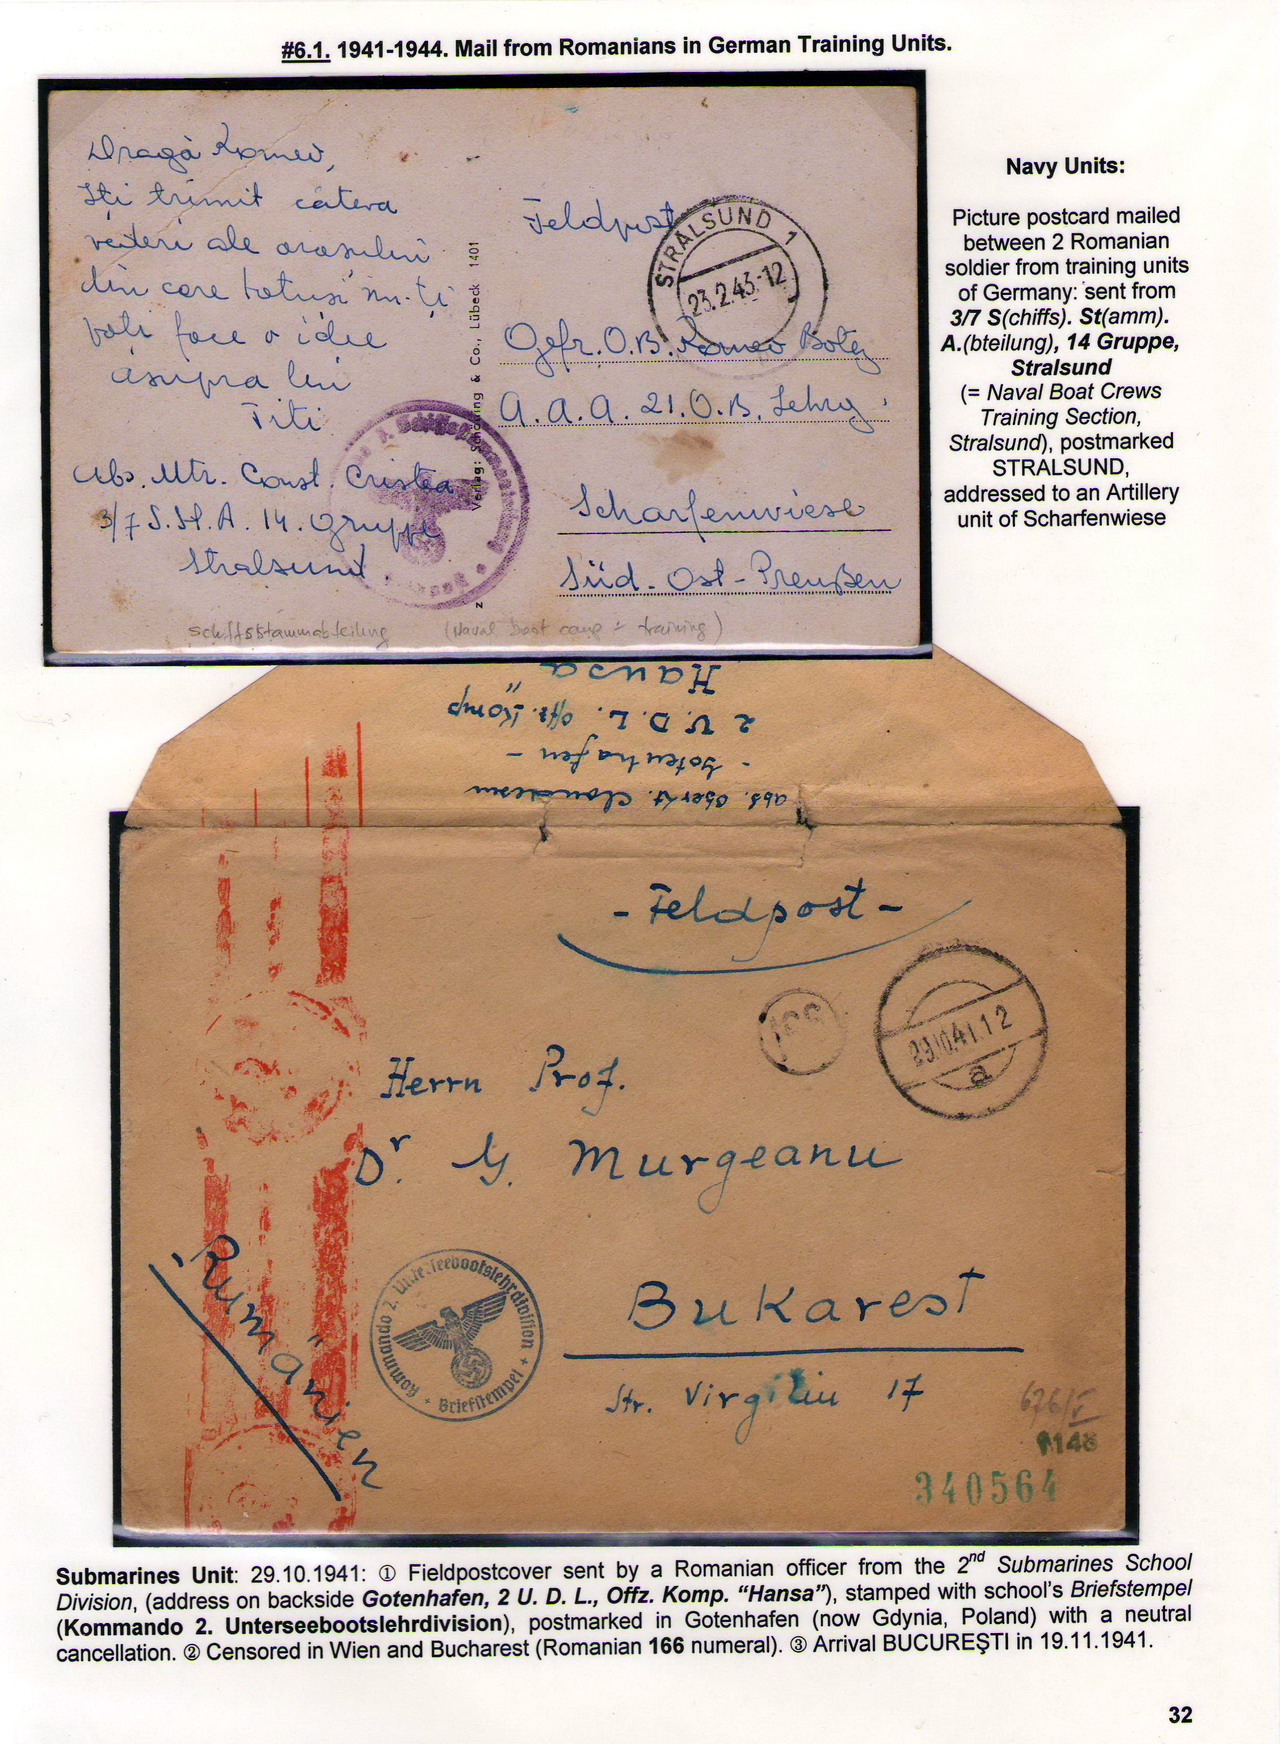 #6.1. 1941-1944. Mail from Romanians in German Training Units.
Dragă Romeo,
Iți trimit câteva
vederi ale orașului
din care totuși nu-ți
poți face o idee
asupra lui
Titi
Abs. Mtr. Const. Cristea
3/7 S.St.A. 14. Gruppe
Stralsund
Schiffsstammabteilung (Naval boat camp = training)
Verlag: Schöning & Co., Lübeck 1401
Feldpost
STRALSUND 1
23.2.43.-12
Gefr. O.B. Romeo Botez
A.A.A. 21. O.B. Lehrg.
Scharfenwiese
Süd-Ost-Preußen
Navy Units:
Picture postcard mailed
between 2 Romanian
soldier from training units
of Germany: sent from
3/7 S(chiffs). St(amm).
A.(bteilung), 14 Gruppe,
Stralsund
(= Naval Boat Crews
Training Section,
Stralsund), postmarked
STRALSUND,
addressed to an Artillery
unit of Scharfenwiese
abs. Oberlt.
- Gotenhafen -
2 U.D.L. Offz. Komp
"Hansa
- Feldpost -
166
29.10.41.12
a
Herrn Prof.
Dr. G. Murgeanu
Bukarest
Str. Virgiliu 17
Rumänien
Kommando 2. Unterseebootslehrdivision
Briefstempel
676/V
1148
340564
Submarines Unit: 29.10.1941: ① Fieldpostcover sent by a Romanian officer from the 2nd Submarines School
Division, (address on backside Gotenhafen, 2 U. D. L., Offz. Komp. “Hansa”), stamped with school’s Briefstempel
(Kommando 2. Unterseebootslehrdivision), postmarked in Gotenhafen (now Gdynia, Poland) with a neutral
cancellation. ② Censored in Wien and Bucharest (Romanian 166 numeral). ③ Arrival BUCUREŞTI in 19.11.1941.
32